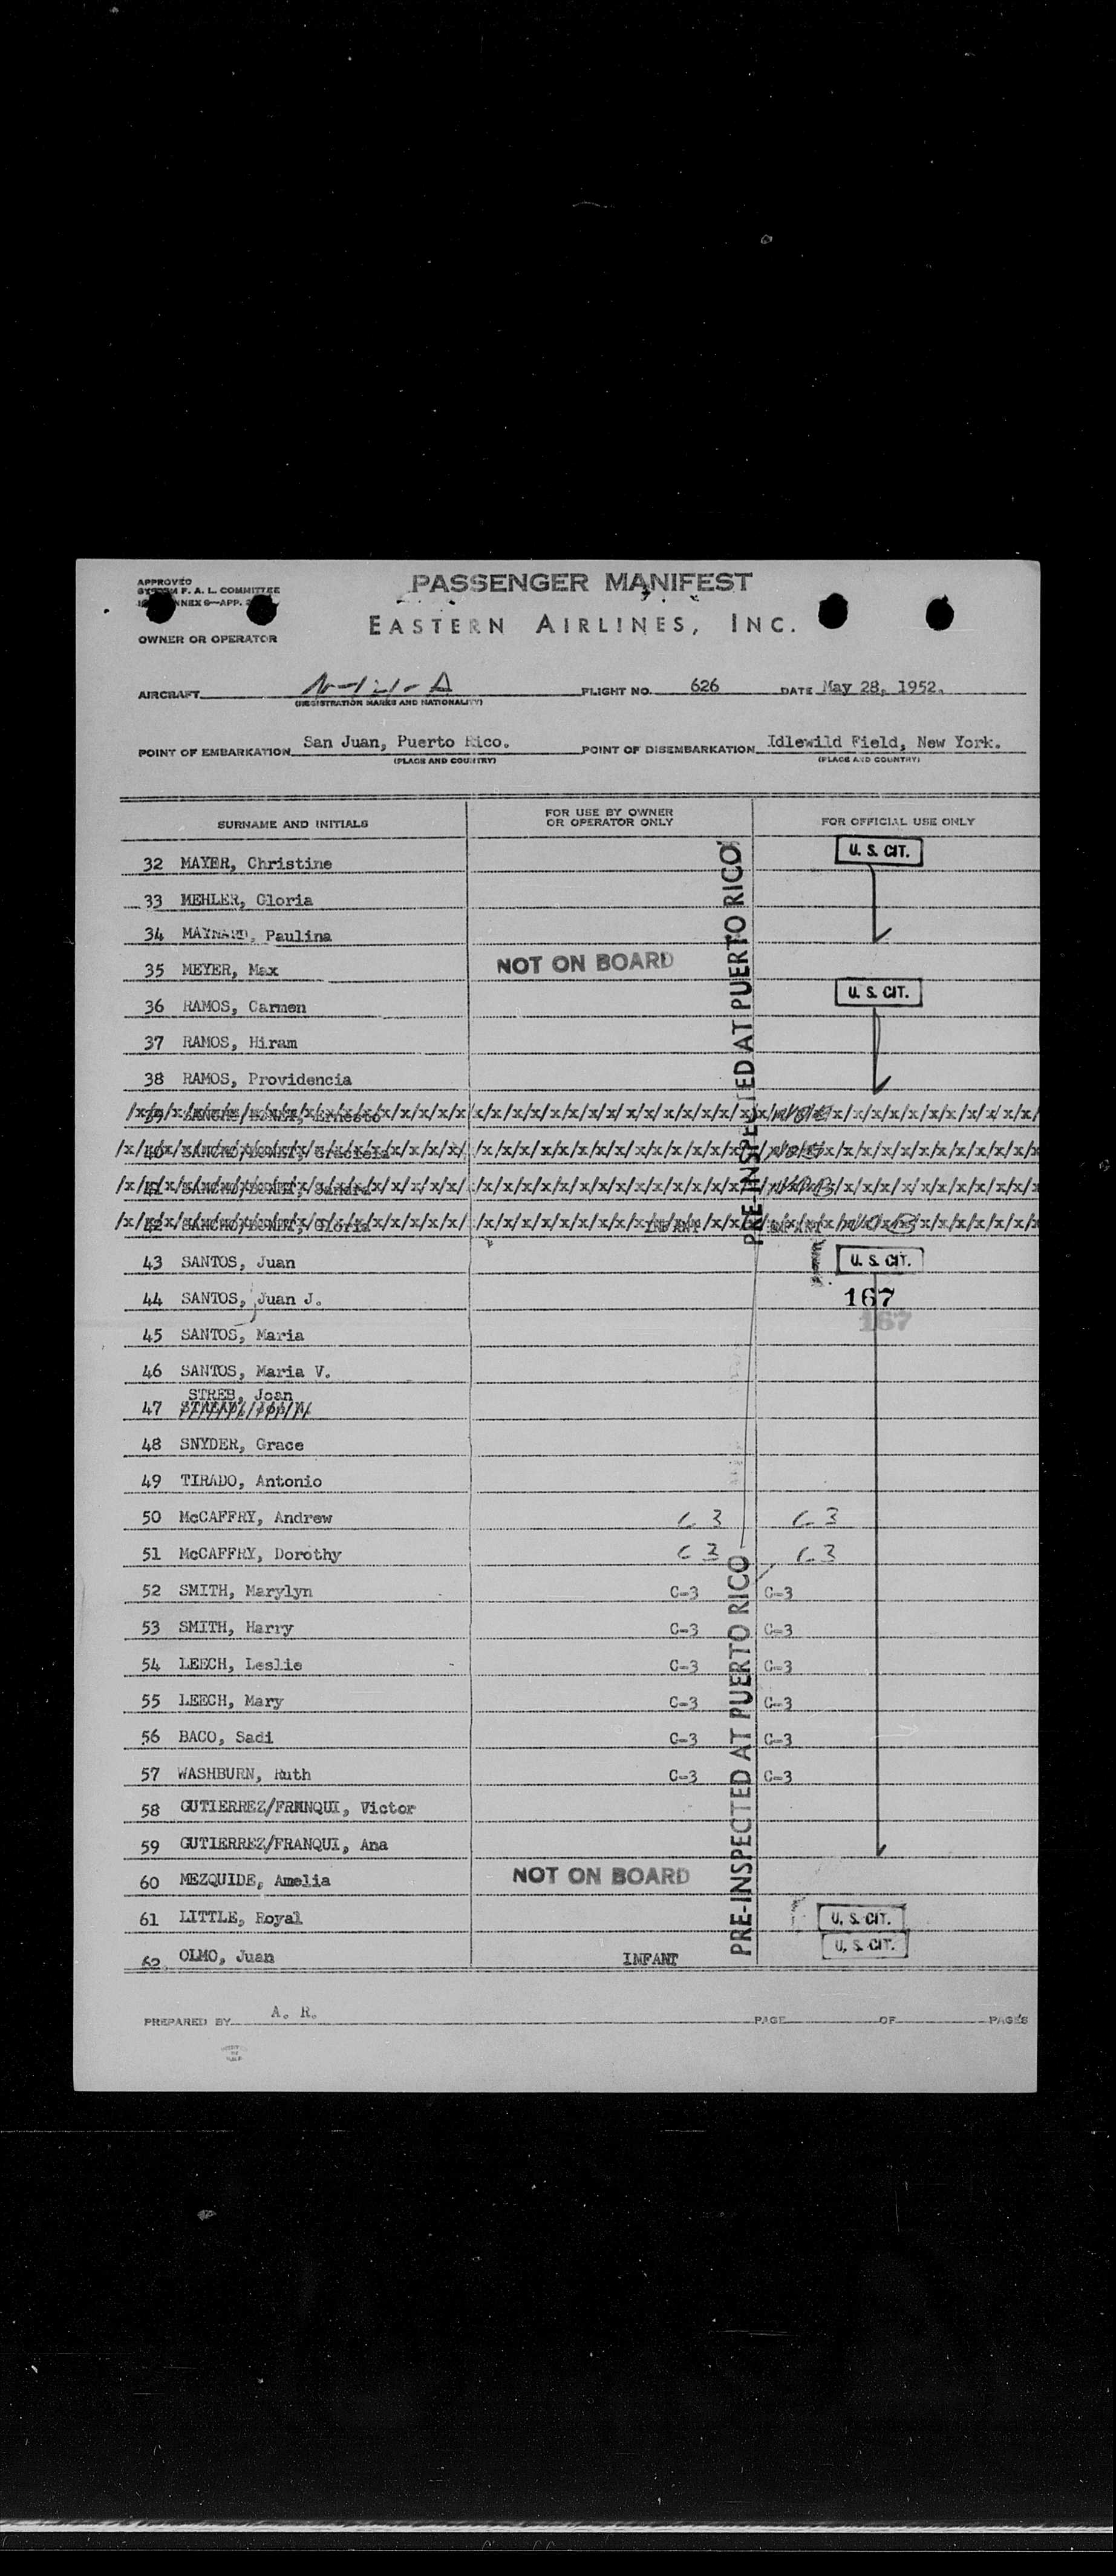 APPROVED
SYSTEM F. A. L. COMMITTEE
ANNEX 6—APP.
PASSENGER MANIFEST
EASTERN AIRLINES, INC.
OWNER OR OPERATOR
AIRCRAFT FLIGHT NO. 626 DATE May 28, 1952.
(REGISTRATION MARKS AND NATIONALITY)
POINT OF EMBARKATION San Juan, Puerto Rico. POINT OF DISEMBARKATION Idlewild Field, New York.
(PLACE AND COUNTRY) (PLACE AND COUNTRY)
SURNAME AND INITIALS FOR USE BY OWNER OR OPERATOR ONLY FOR OFFICIAL USE ONLY
32 MAYER, Christine U. S. CIT.
33 MEHLER, Gloria
34 MAYNARD, Paulina
35 MEYER, Max NOT ON BOARD
36 RAMOS, Carmen U. S. CIT.
37 RAMOS, Hiram
38 RAMOS, Providencia
PRE-INSPECTED AT PUERTO RICO
39 Ernesto
40 SANCHO/BONET, Graciela
41 SANCHO/BONET, Sandra
42 SANCHO/BONET, Gloria INFANT INFANT
43 SANTOS, Juan U. S. CIT.
44 SANTOS, Juan J. 167
167
45 SANTOS, Maria
46 SANTOS, Maria V.
STREB, Joan
47
48 SNYDER, Grace
49 TIRADO, Antonio
50 McCAFFRY, Andrew C 3 C 3
51 McCAFFRY, Dorothy C 3 C 3
52 SMITH, Marylyn C-3 C-3
53 SMITH, Harry C-3 C-3
54 LEECH, Leslie C-3 C-3
55 LEECH, Mary C-3 C-3
56 BACO, Sadi C-3 C-3
57 WASHBURN, Ruth C-3 C-3
58 GUTIERREZ/FRNNQUI, Victor
59 GUTIERREZ/FRANQUI, Ana
60 MEZQUIDE, Amelia NOT ON BOARD
61 LITTLE, Royal U. S. CIT.
62 OLMO, Juan INFANT U. S. CIT.
PRE-INSPECTED AT PUERTO RICO
PREPARED BY A. R. PAGE OF PAGES